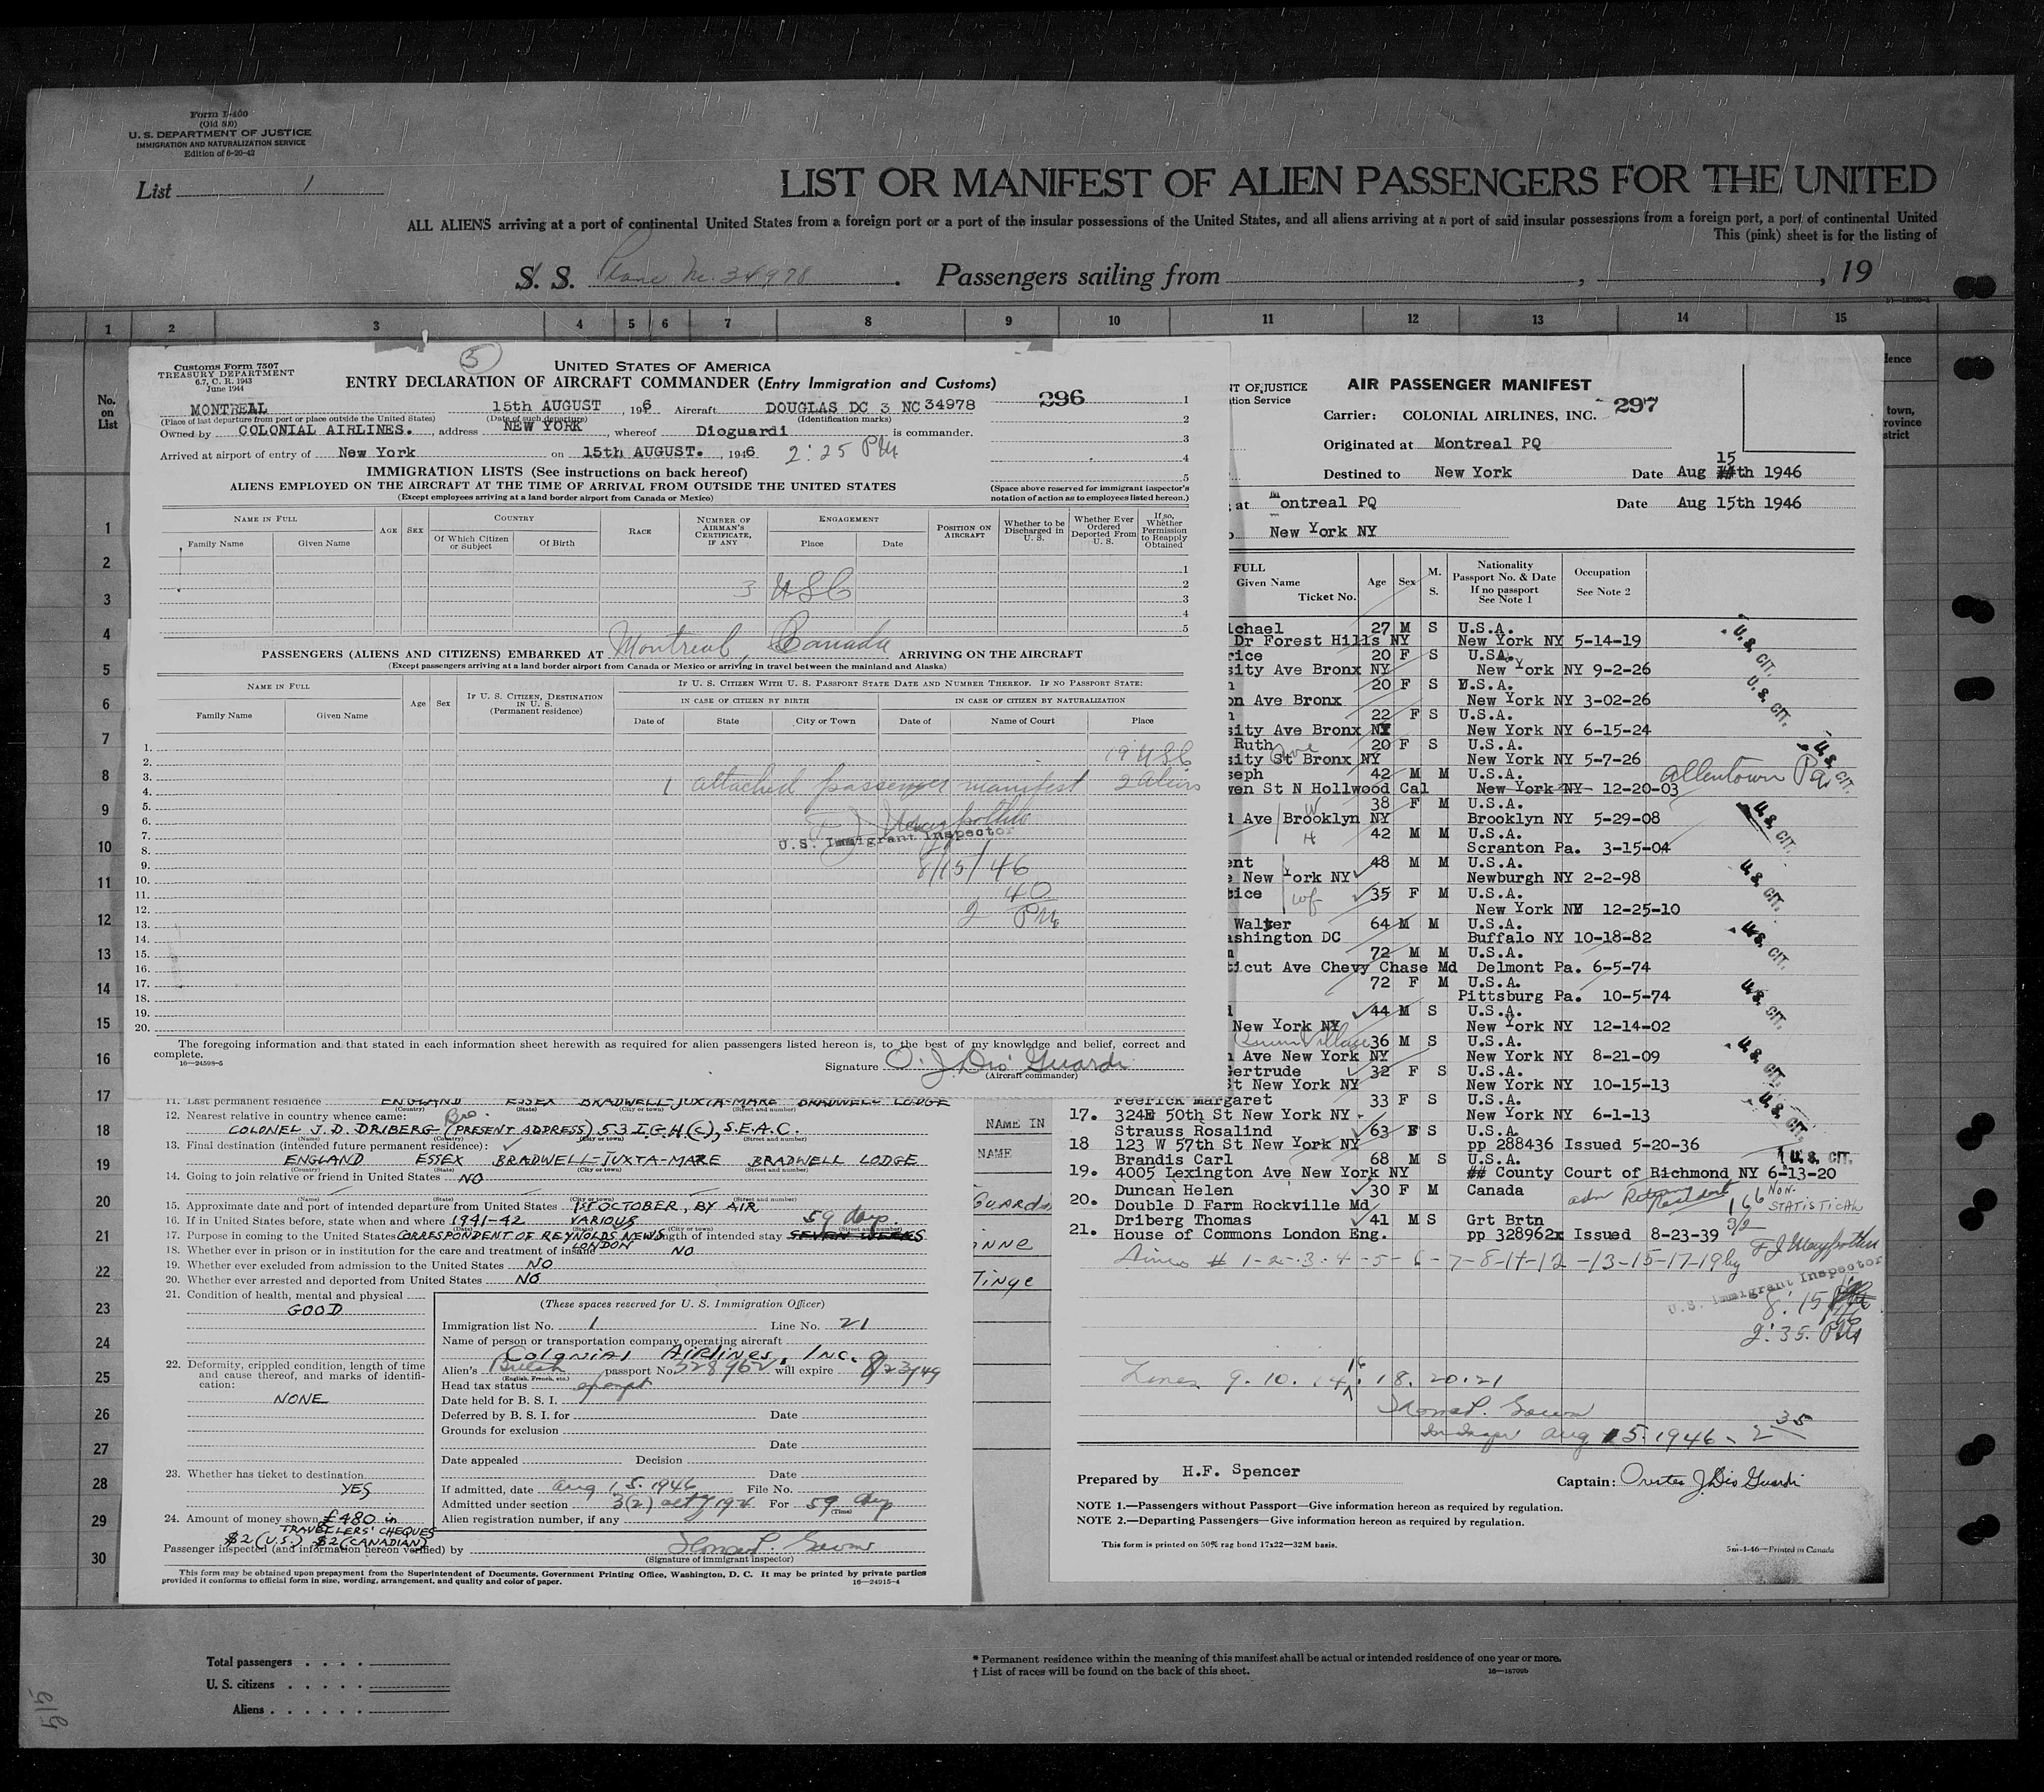 Form I-400
(Old 500)
U. S. DEPARTMENT OF JUSTICE
IMMIGRATION AND NATURALIZATION SERVICE
Edition of 6-20-42
List 1
LIST OR MANIFEST OF ALIEN PASSENGERS FOR THE UNITED
ALL ALIENS arriving at a port of continental United States from a foreign port or a port of the insular possessions of the United States, and all aliens arriving at a port of said insular possessions from a foreign port, a port of continental United
This (pink) sheet is for the listing of
S. S. Plane Nc. 34978. Passengers sailing from , , 19
1 2 3 4 5 6 7 8 9 10 11 12 13 14 15
No. on List
1
2
3
4
5
6
7
8
9
10
11
12
13
14
15
16
17
18
19
20
21
22
23
24
25
26
27
28
29
30
Customs Form 7507
TREASURY DEPARTMENT
6.7, C. R. 1943
June 1944
5
UNITED STATES OF AMERICA
ENTRY DECLARATION OF AIRCRAFT COMMANDER (Entry Immigration and Customs)
296
MONTREAL 15th AUGUST, 1946 Aircraft DOUGLAS DC 3 NC 34978
(Place of last departure from port or place outside the United States) (Date of such departure) (Identification marks)
Owned by COLONIAL AIRLINES., address NEW YORK, whereof Dioguardi is commander.
Arrived at airport of entry of New York on 15th AUGUST., 1946 2:25 PM
IMMIGRATION LISTS (See instructions on back hereof)
ALIENS EMPLOYED ON THE AIRCRAFT AT THE TIME OF ARRIVAL FROM OUTSIDE THE UNITED STATES
(Except employees arriving at a land border airport from Canada or Mexico)
1
2
3
4
5
(Space above reserved for immigrant inspector's notation of action as to employees listed hereon.)
NAME IN FULL AGE SEX COUNTRY RACE NUMBER OF AIRMAN'S CERTIFICATE, IF ANY ENGAGEMENT POSITION ON AIRCRAFT Whether to be Discharged in U. S. Whether Ever Ordered Deported From U. S. If so, Whether Permission to Reapply Obtained
Family Name Given Name Of Which Citizen or Subject Of Birth Place Date
1
2
3 USC
3
4
5
PASSENGERS (ALIENS AND CITIZENS) EMBARKED AT Montreal, Canada ARRIVING ON THE AIRCRAFT
(Except passengers arriving at a land border airport from Canada or Mexico or arriving in travel between the mainland and Alaska)
NAME IN FULL Age Sex IF U. S. CITIZEN, DESTINATION IN U. S. (Permanent residence) IF U. S. CITIZEN WITH U. S. PASSPORT STATE DATE AND NUMBER THEREOF. IF NO PASSPORT STATE:
IN CASE OF CITIZEN BY BIRTH IN CASE OF CITIZEN BY NATURALIZATION
Family Name Given Name Date of State City or Town Date of Name of Court Place
1. 19 USC
2.
3. 1 attached passenger manifest 2 aliens
4.
5.
6.
7. U.S. Immigrant Inspector
8.
9. 8/15/46
10.
11. 2 40 PM
12.
13.
14.
15.
16.
17.
18.
19.
20.
The foregoing information and that stated in each information sheet herewith as required for alien passengers listed hereon is, to the best of my knowledge and belief, correct and complete.
16—24598-5
Signature O. J. Dio Guardi
(Aircraft commander)
11. Last permanent residence ENGLAND ESSEX BRADWELL-JUXTA-MARE BRADWELL LODGE
(Country) (City or town) (Street and number)
12. Nearest relative in country whence came: Bro.
COLONEL J.D. DRIBERG (PRESENT ADDRESS) 53 I.G.H.(C), S.E.A.C.
(Name) (Country) (City or town) (Street and number)
13. Final destination (intended future permanent residence):
ENGLAND ESSEX BRADWELL-JUXTA-MARE BRADWELL LODGE
(Country) (State) (City or town) (Street and number)
14. Going to join relative or friend in United States NO
(Name) (State) (City or town) (Street and number)
15. Approximate date and port of intended departure from United States 1st OCTOBER, BY AIR
16. If in United States before, state when and where 1941-42 VARIOUS
(Date) (State) (City or town)
17. Purpose in coming to the United States CORRESPONDENT OF REYNOLDS NEWS LONDON Length of intended stay SEVEN WEEKS 59 days.
18. Whether ever in prison or in institution for the care and treatment of insane NO
19. Whether ever excluded from admission to the United States NO
20. Whether ever arrested and deported from United States NO
21. Condition of health, mental and physical
GOOD
22. Deformity, crippled condition, length of time and cause thereof, and marks of identification:
NONE
23. Whether has ticket to destination
YES
24. Amount of money shown £480 in TRAVELLERS' CHEQUES
$2 (U.S.) $2 (CANADIAN)
(These spaces reserved for U. S. Immigration Officer)
Immigration list No. 1 Line No. 21
Name of person or transportation company operating aircraft
COLONIAL AIRLINES, INC.
Alien's British passport No. 328962 will expire 8/23/49
(English, French, etc.)
Head tax status exempt
Date held for B. S. I.
Deferred by B. S. I. for Date
Grounds for exclusion
Date
Date appealed Decision
Date
If admitted, date Aug 15. 1946 File No.
Admitted under section 3(2) act of 1924 For 59 days
(Time)
Alien registration number, if any
Passenger inspected (and information hereon verified) by
(Signature of immigrant inspector)
This form may be obtained upon prepayment from the Superintendent of Documents, Government Printing Office, Washington, D. C. It may be printed by private parties
provided it conforms to official form in size, wording, arrangement, and quality and color of paper. 16—24915-4
NAME IN
NAME
GUARDI
ONNE
Tinge
NT OF JUSTICE
tion Service
AIR PASSENGER MANIFEST
Carrier: COLONIAL AIRLINES, INC. 297
Originated at Montreal PQ
Destined to New York Date Aug 15 14th 1946
at Montreal PQ Date Aug 15th 1946
New York NY
FULL Given Name Ticket No. Age Sex M. S. Nationality Passport No. & Date If no passport See Note 1 Occupation See Note 2
ichael 27 M S U.S.A.
Dr Forest Hills NY New York NY 5-14-19
rice 20 F S U.S.A.
sity Ave Bronx NY New York NY 9-2-26
20 F S U.S.A.
on Ave Bronx New York NY 3-02-26
22 F S U.S.A.
sity Ave Bronx NY New York NY 6-15-24
Ruth 20 F S U.S.A.
sity St Ave Bronx NY New York NY 5-7-26
seph 42 M M U.S.A. Allentown Pa
ven St N Hollwood Cal New York NY 12-20-03
38 F M U.S.A.
Ave Brooklyn NY Brooklyn NY 5-29-08
42 M M U.S.A.
Scranton Pa. 3-15-04
ent 48 M M U.S.A.
New York NY Newburgh NY 2-2-98
tice wf 35 F M U.S.A.
New York NY 12-25-10
Walter 64 M M U.S.A.
ashington DC Buffalo NY 10-18-82
72 M M U.S.A.
ticut Ave Chevy Chase Md Delmont Pa. 6-5-74
72 F M U.S.A.
Pittsburg Pa. 10-5-74
44 M S U.S.A.
New York NY New York NY 12-14-02
36 M S U.S.A.
Ave New York NY New York NY 8-21-09
Gertrude 32 F S U.S.A.
St New York NY New York NY 10-15-13
Feerick Margaret 33 F S U.S.A.
17. 324E 50th St New York NY New York NY 6-1-13
Strauss Rosalind 63 F S U.S.A.
18 123 W 57th St New York NY pp 288436 Issued 5-20-36
Brandis Carl 68 M S U.S.A.
19. 4005 Lexington Ave New York NY County Court of Richmond NY 6-13-20
Duncan Helen 30 F M Canada
20. Double D Farm Rockville Md
Driberg Thomas 41 M S Grt Brtn
21. House of Commons London Eng. pp 328962x Issued 8-23-39
U.S. CIT.
U.S. CIT.
U.S. CIT.
U.S. CIT.
U.S. CIT.
U.S. CIT.
U.S. CIT.
U.S. CIT.
U.S. CIT.
U.S. CIT.
NON-STATISTICAL
3/2
Lines # 1-2-3-4-5-6-7-8-11-12-13-15-17-19 by
U.S. Immigrant Inspector
2:35 PM
Lines 9. 10. 14. 16. 18. 20. 21
Aug 15. 1946 - 2 35
Prepared by H.F. Spencer Captain: Orestes J. Dio Guardi
NOTE 1.—Passengers without Passport—Give information hereon as required by regulation.
NOTE 2.—Departing Passengers—Give information hereon as required by regulation.
This form is printed on 50% rag bond 17x22—32M basis. 5m-4-46—Printed in Canada
Total passengers
U. S. citizens
Aliens
* Permanent residence within the meaning of this manifest shall be actual or intended residence of one year or more.
† List of races will be found on the back of this sheet. 16—18709b